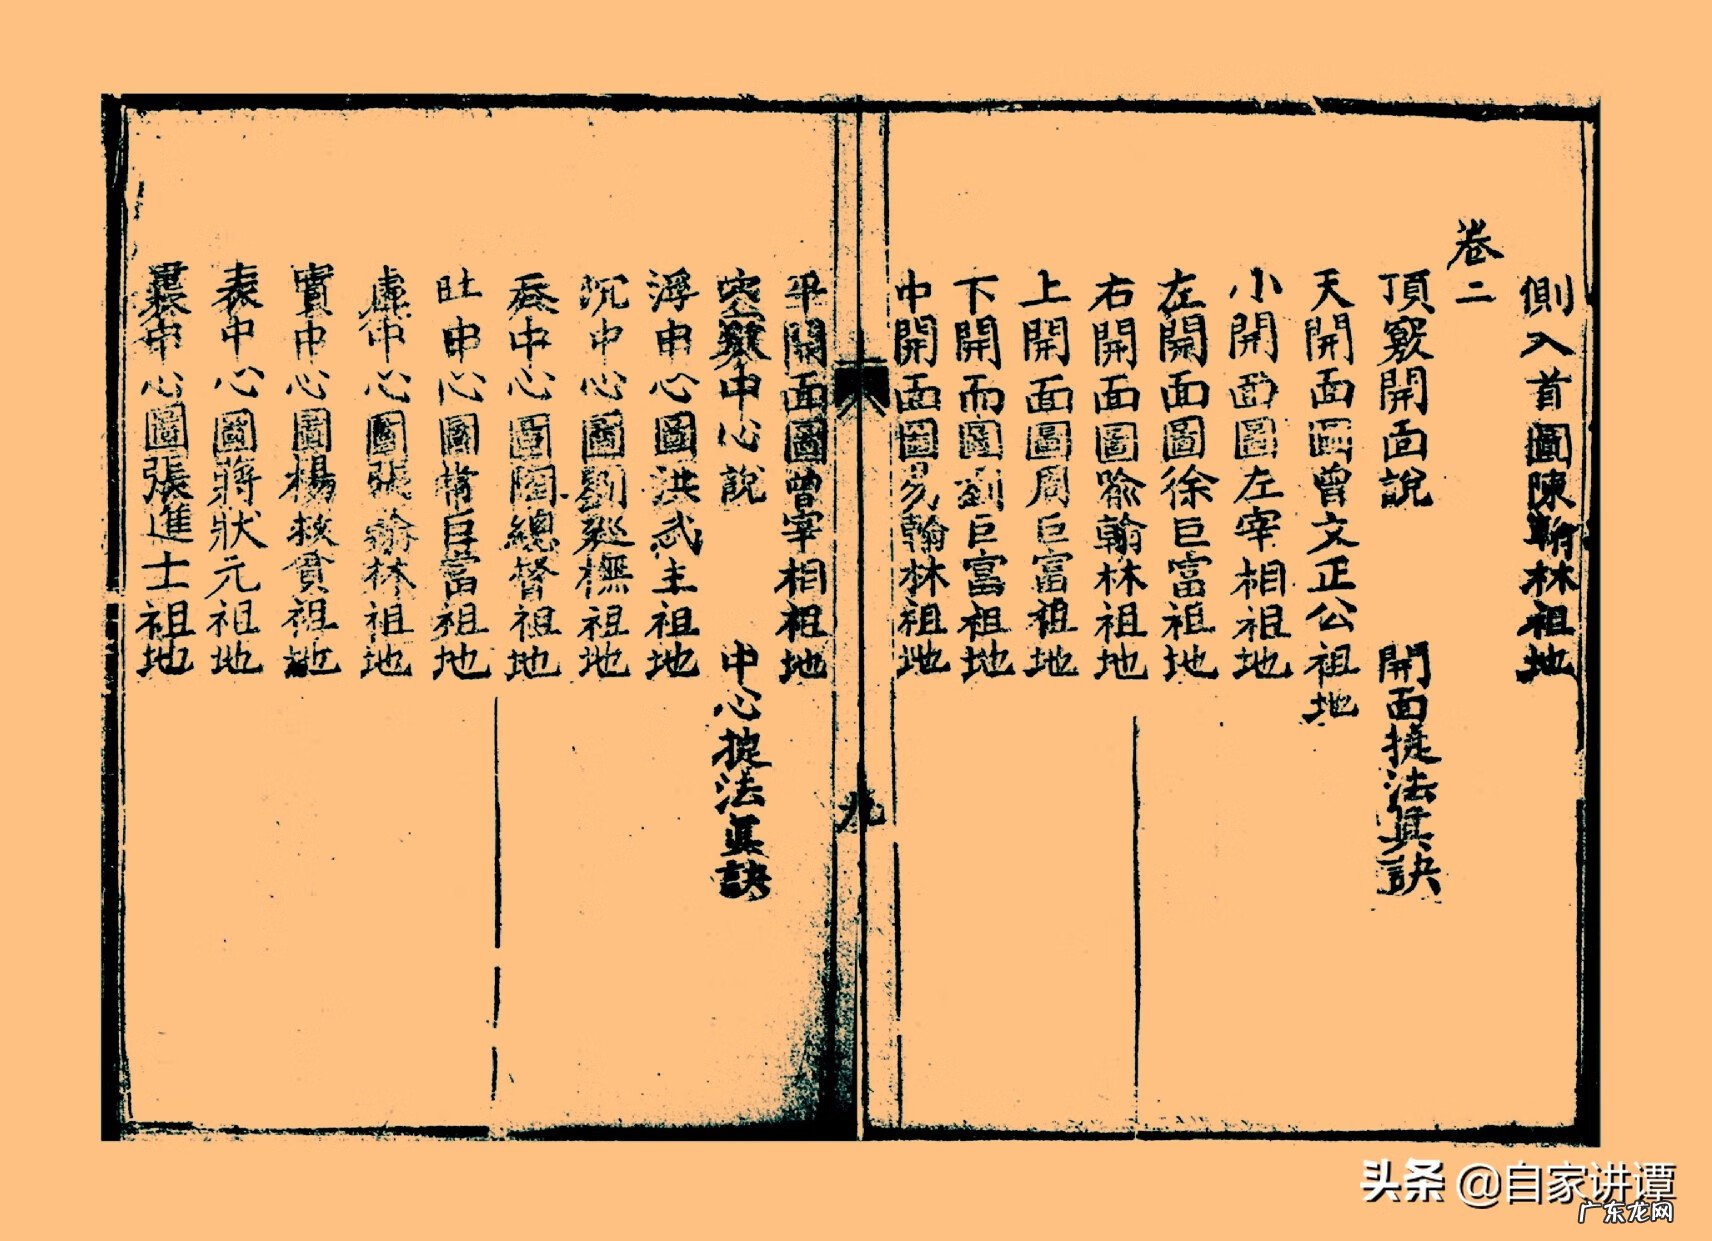 側入首圖陳翰林祖地
卷二
頂竅開面說 開面掟法眞訣
天開面圖曾文正公祖地
小開面圖左宰相祖地
左開面圖徐巨富祖地
右開面圖喻翰林祖地
上開面圖周巨富祖地
下開面圖劉巨富祖地
中開面圖易翰林祖地
九
平開面圖曾宰相祖地
中心說 中心掟法眞訣
浮中心圖洪武主祖地
沉中心圖劉巡撫祖地
吞中心圖陶總督祖地
吐中心圖常巨富祖地
虛中心圖張翰林祖地
實中心圖楊祖地
表中心圖蔣狀元祖地
裏中心圖張進士祖地
头条 @自家讲谭
广东龙网